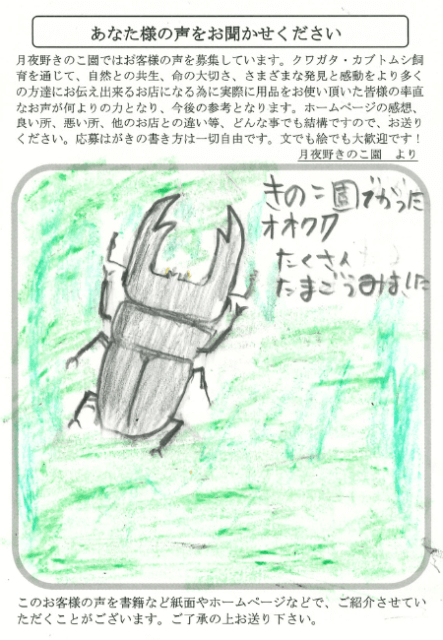 あなた様の声をお聞かせください
月夜野きのこ園ではお客様の声を募集しています。クワガタ・カブトムシ飼
育を通じて、自然との共生、命の大切さ、さまざまな発見と感動をより多く
の方達にお伝え出来るお店になる為に実際に用品をお使い頂いた皆様の率直
なお声が何よりの力となり、今後の参考となります。ホームページの感想、
良い所、悪い所、他のお店との違い等、どんな事でも結構ですので、お送り
ください。応募はがきの書き方は一切自由です。文でも絵でも大歓迎です！
月夜野きのこ園 より
きのこ園でかった
オオクワ
たくさん
たまごうみました
このお客様の声を書籍など紙面やホームページなどで、ご紹介させてい
ただくことがございます。ご了承の上お送り下さい。